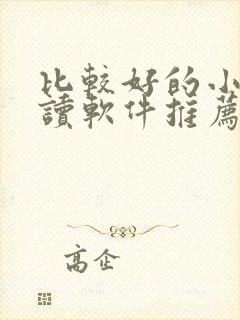 比較好的小
讀軟件推薦
高企